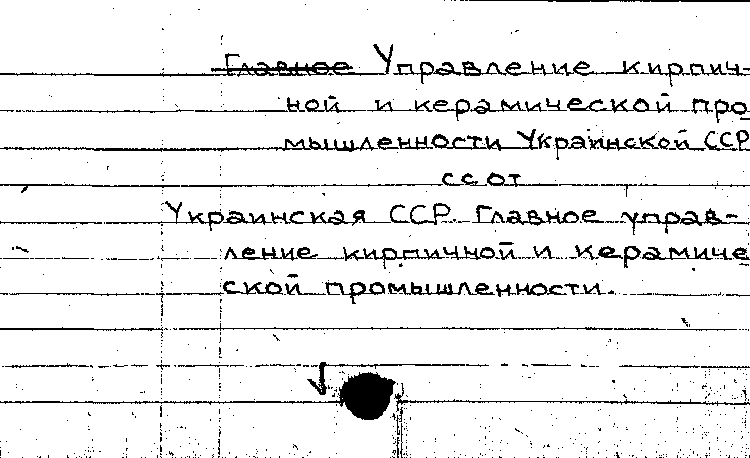 Главное Управление кирпич-
ной и керамической про
мышленности Украинской ССР
ссот
Украинская ССР. Главное управ-
ление кирпичной и керамиче
ской промышленности.